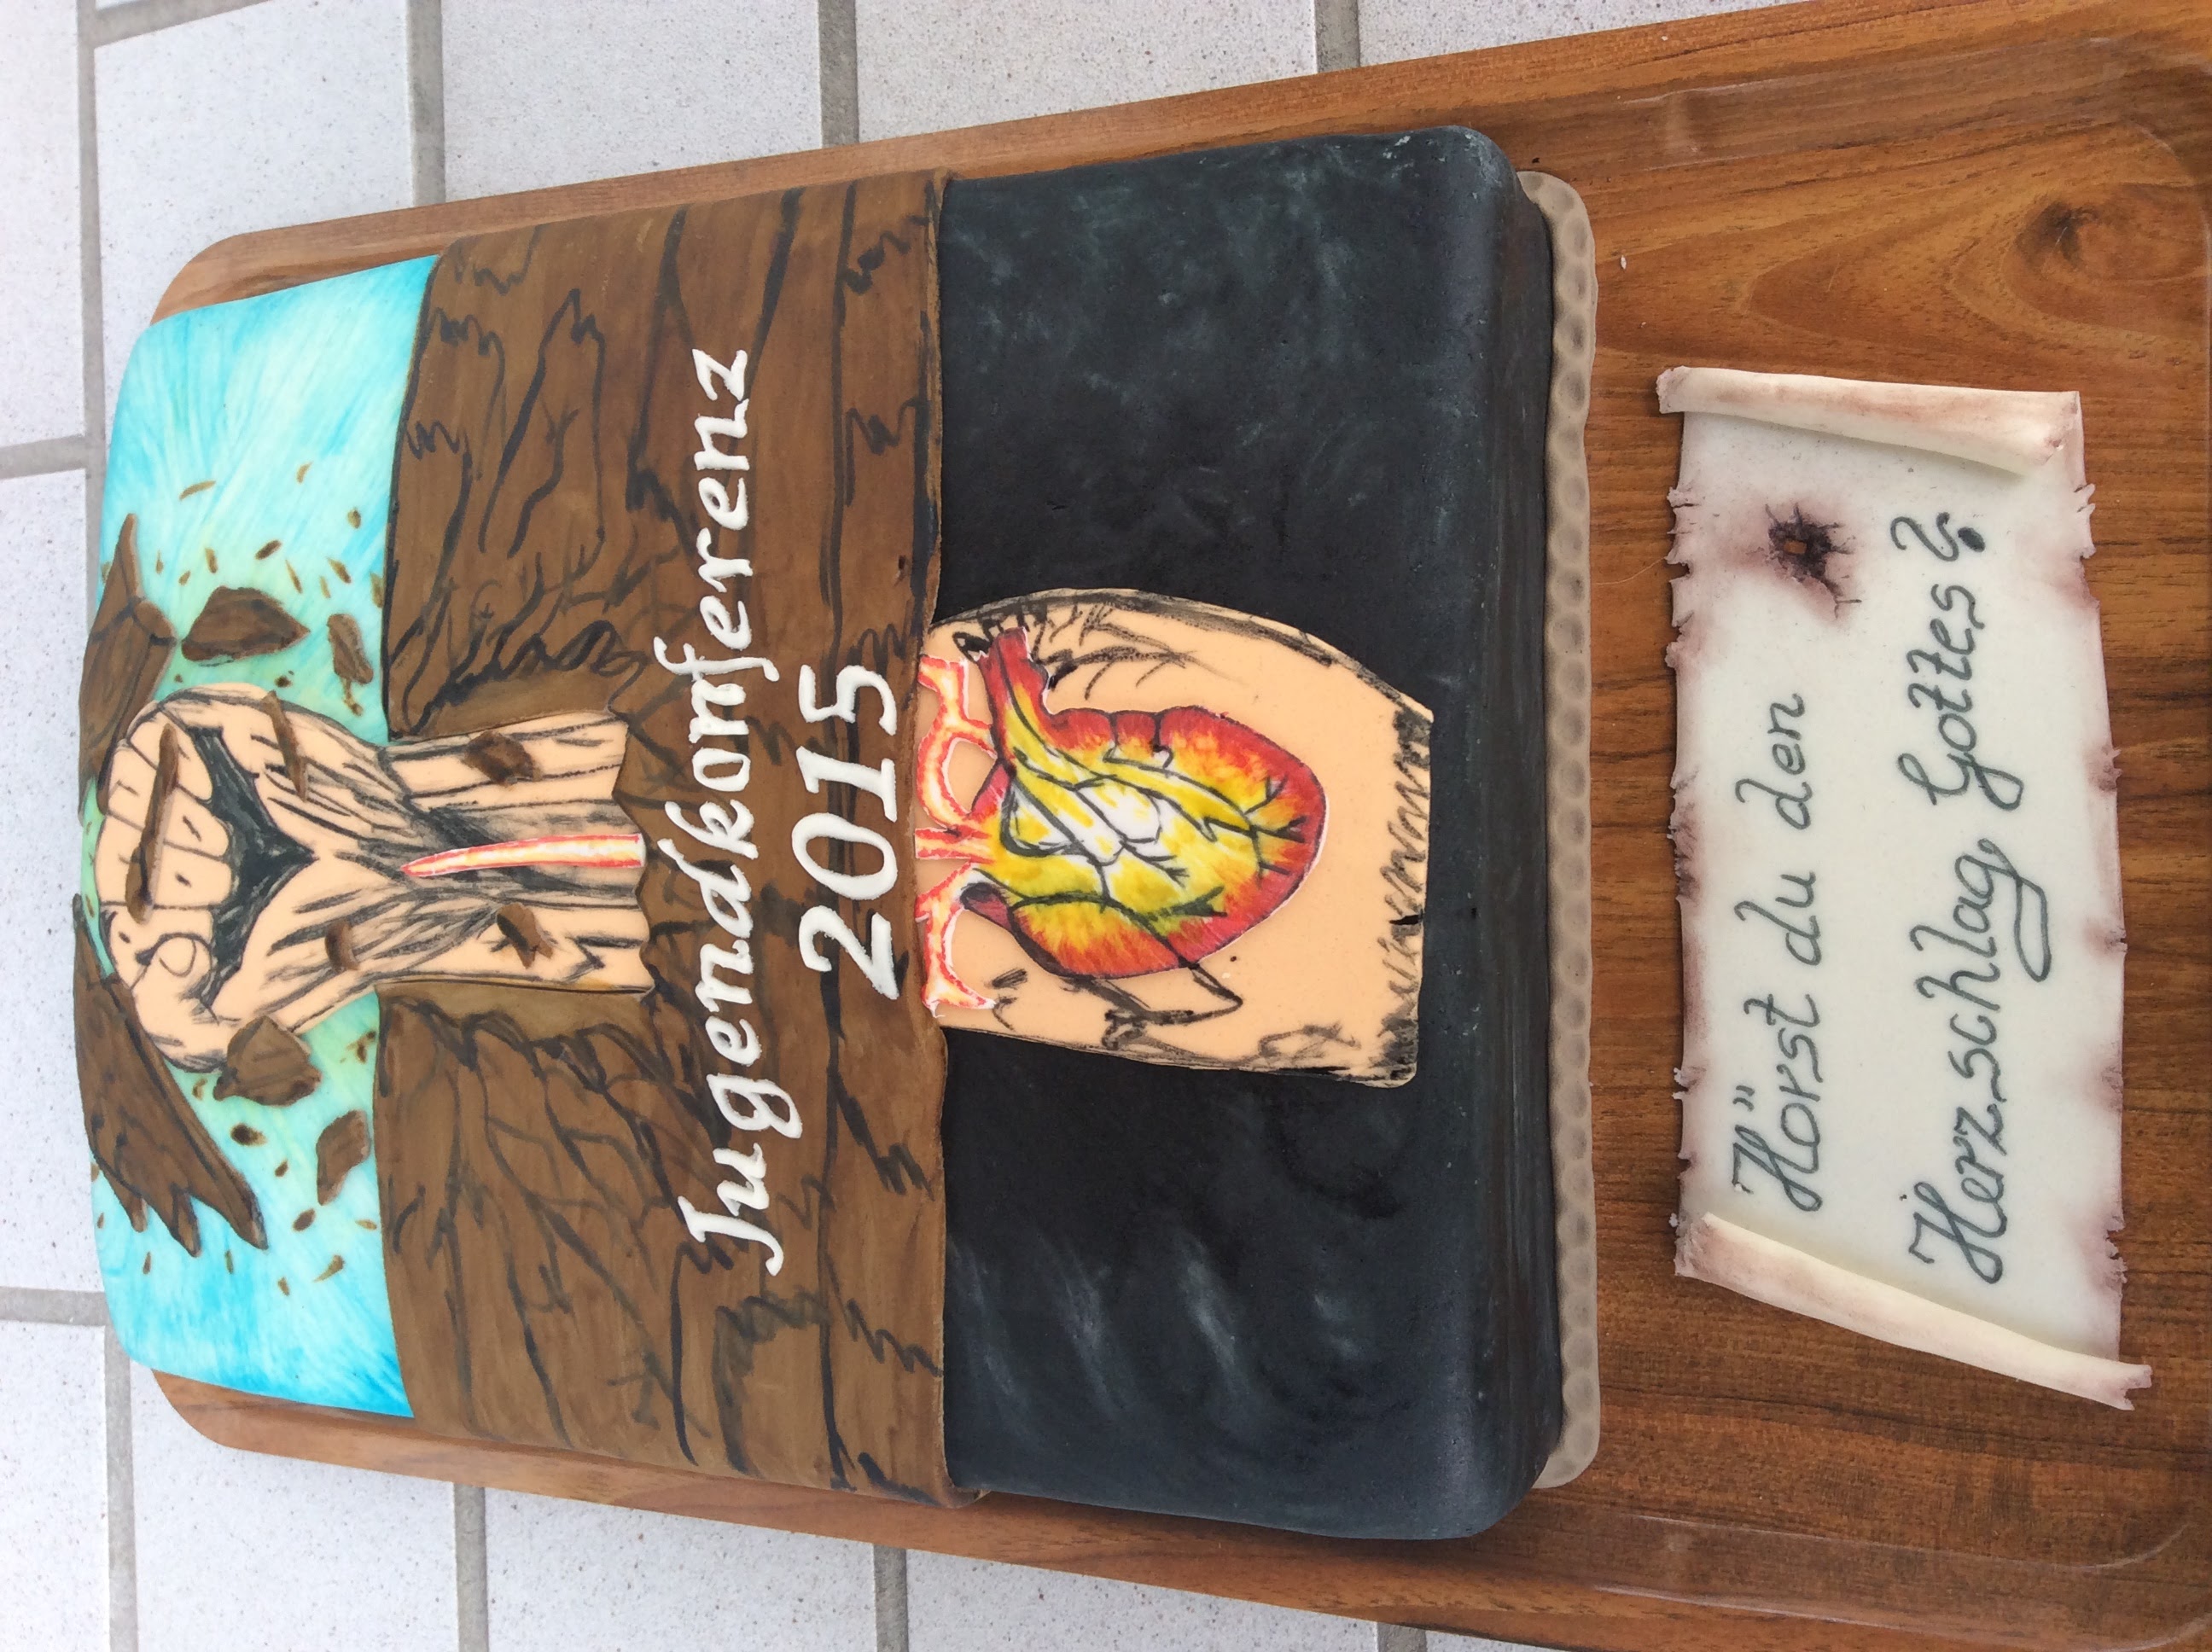 Jugendkonferenz
2015
Hörst du den
Herzschlag Gottes?